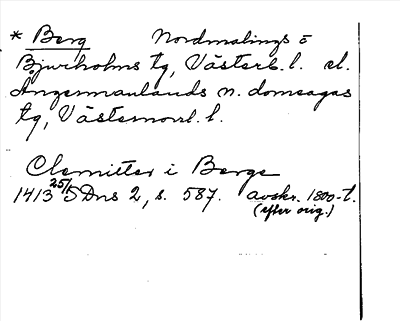 * Berg Nordmalings o
Bjurholms tg, Västerb. l. el.
Ångermanlands n. domsagas
tg, Västernorrl. l.
Clemitter i Berge
1413 25/5 Dns 2, s. 587. Avskr. 1800-t.
(efter orig.)